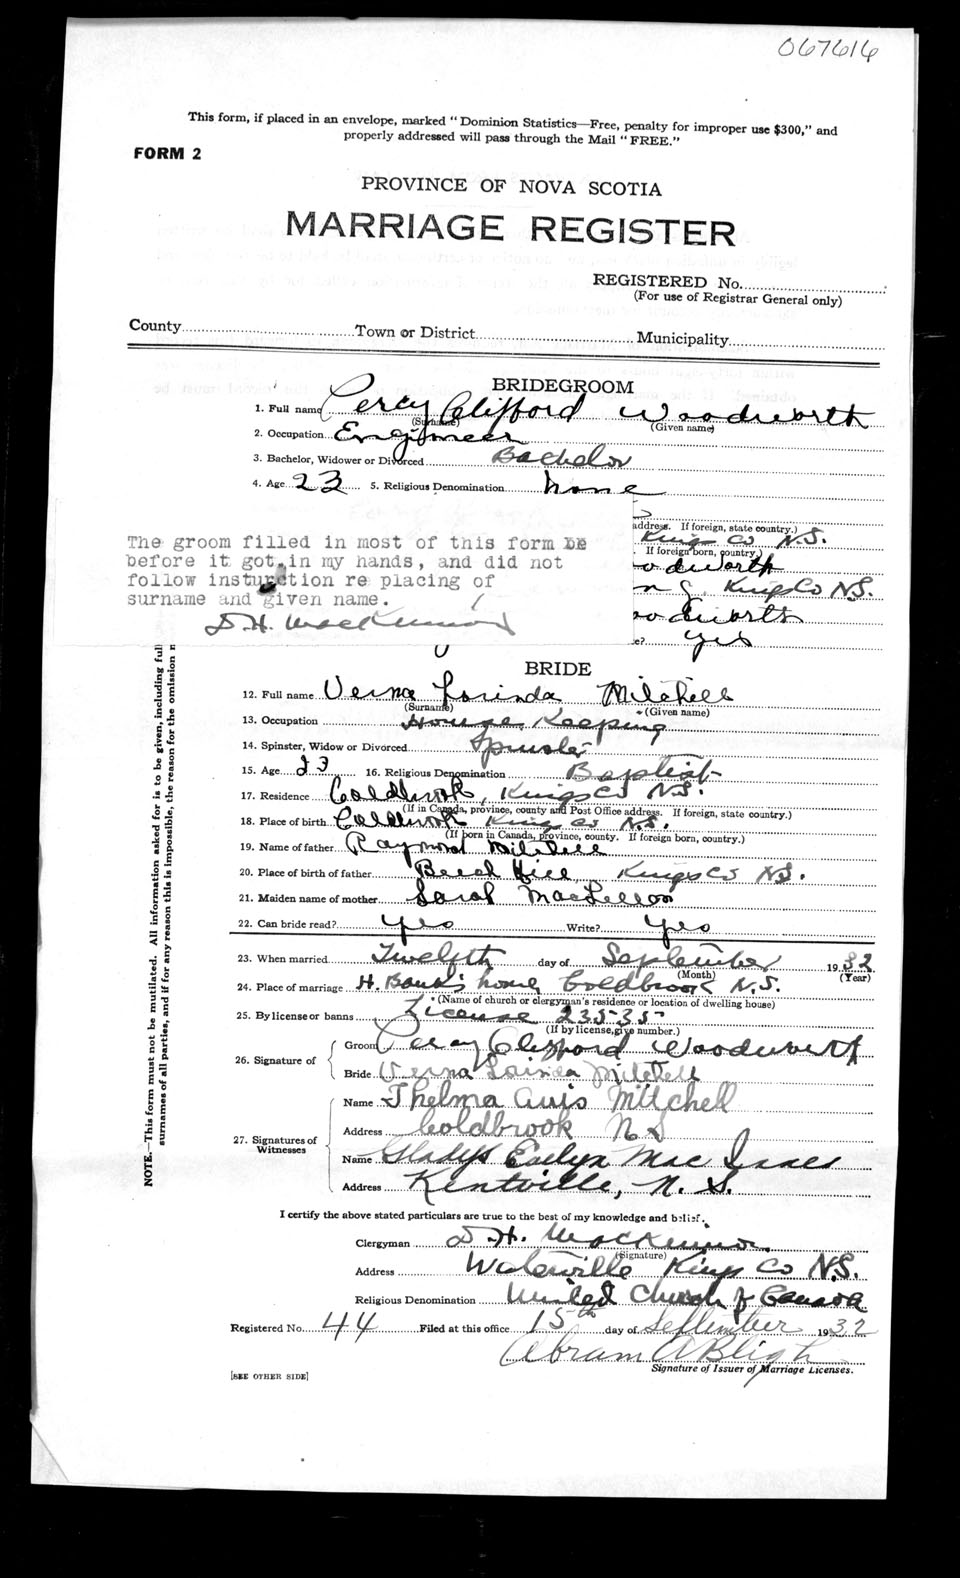 067616
This form, if placed in an envelope, marked "Dominion Statistics—Free, penalty for improper use $300," and
properly addressed will pass through the Mail "FREE."
FORM 2
PROVINCE OF NOVA SCOTIA
MARRIAGE REGISTER
REGISTERED No.
(For use of Registrar General only)
County Town or District Municipality
BRIDEGROOM
1. Full name Percy Clifford Woodworth
(Surname) (Given name)
2. Occupation Engineer
3. Bachelor, Widower or Divorced Bachelor
4. Age 23 5. Religious Denomination none
address. If foreign, state country.)
Kings Co N.S.
If foreign born, country.)
The groom filled in most of this form be
before it got in my hands, and did not
follow insturction re placing of
surname and given name.
D. H. MacKinnon
oodworth
Kings Co N.S.
oodworth
e? yes
BRIDE
12. Full name Verna Lorinda Mitchell
(Surname) (Given name)
13. Occupation House Keeping
14. Spinster, Widow or Divorced Spinster
15. Age 23 16. Religious Denomination Baptist
17. Residence Coldbrook, Kings Co N.S.
(If in Canada, province, county and Post Office address. If foreign, state country.)
18. Place of birth Coldbrook Kings Co N.S.
(If born in Canada, province, county. If foreign born, country.)
19. Name of father Raymond Mitchell
20. Place of birth of father Beech Hill Kings Co N.S.
21. Maiden name of mother Sarah MacLellon
22. Can bride read? Yes Write? Yes
23. When married Twelfth day of September 1932
(Month) (Year)
24. Place of marriage H. Bank's home Coldbrook N.S.
(Name of church or clergyman's residence or location of dwelling house)
25. By license or banns License 23535
(If by license, give number.)
26. Signature of
Groom Percy Clifford Woodworth
Bride Verna Lorinda Mitchell
27. Signatures of Witnesses
Name Thelma Avis Mitchell
Address Coldbrook N S
Name Gladys Evelyn Mac Innes
Address Kentville, N. S.
I certify the above stated particulars are true to the best of my knowledge and belief.
Clergyman D. H. MacKinnon
(Signature)
Address Waterville Kings Co N.S.
Religious Denomination United Church of Canada
Registered No. 44 Filed at this office 15th day of September 1932
Abram A Bligh
Signature of Issuer of Marriage Licenses.
[SEE OTHER SIDE]
NOTE.—This form must not be mutilated. All information asked for is to be given, including full
surnames of all parties, and if for any reason this is impossible, the reason for the omission